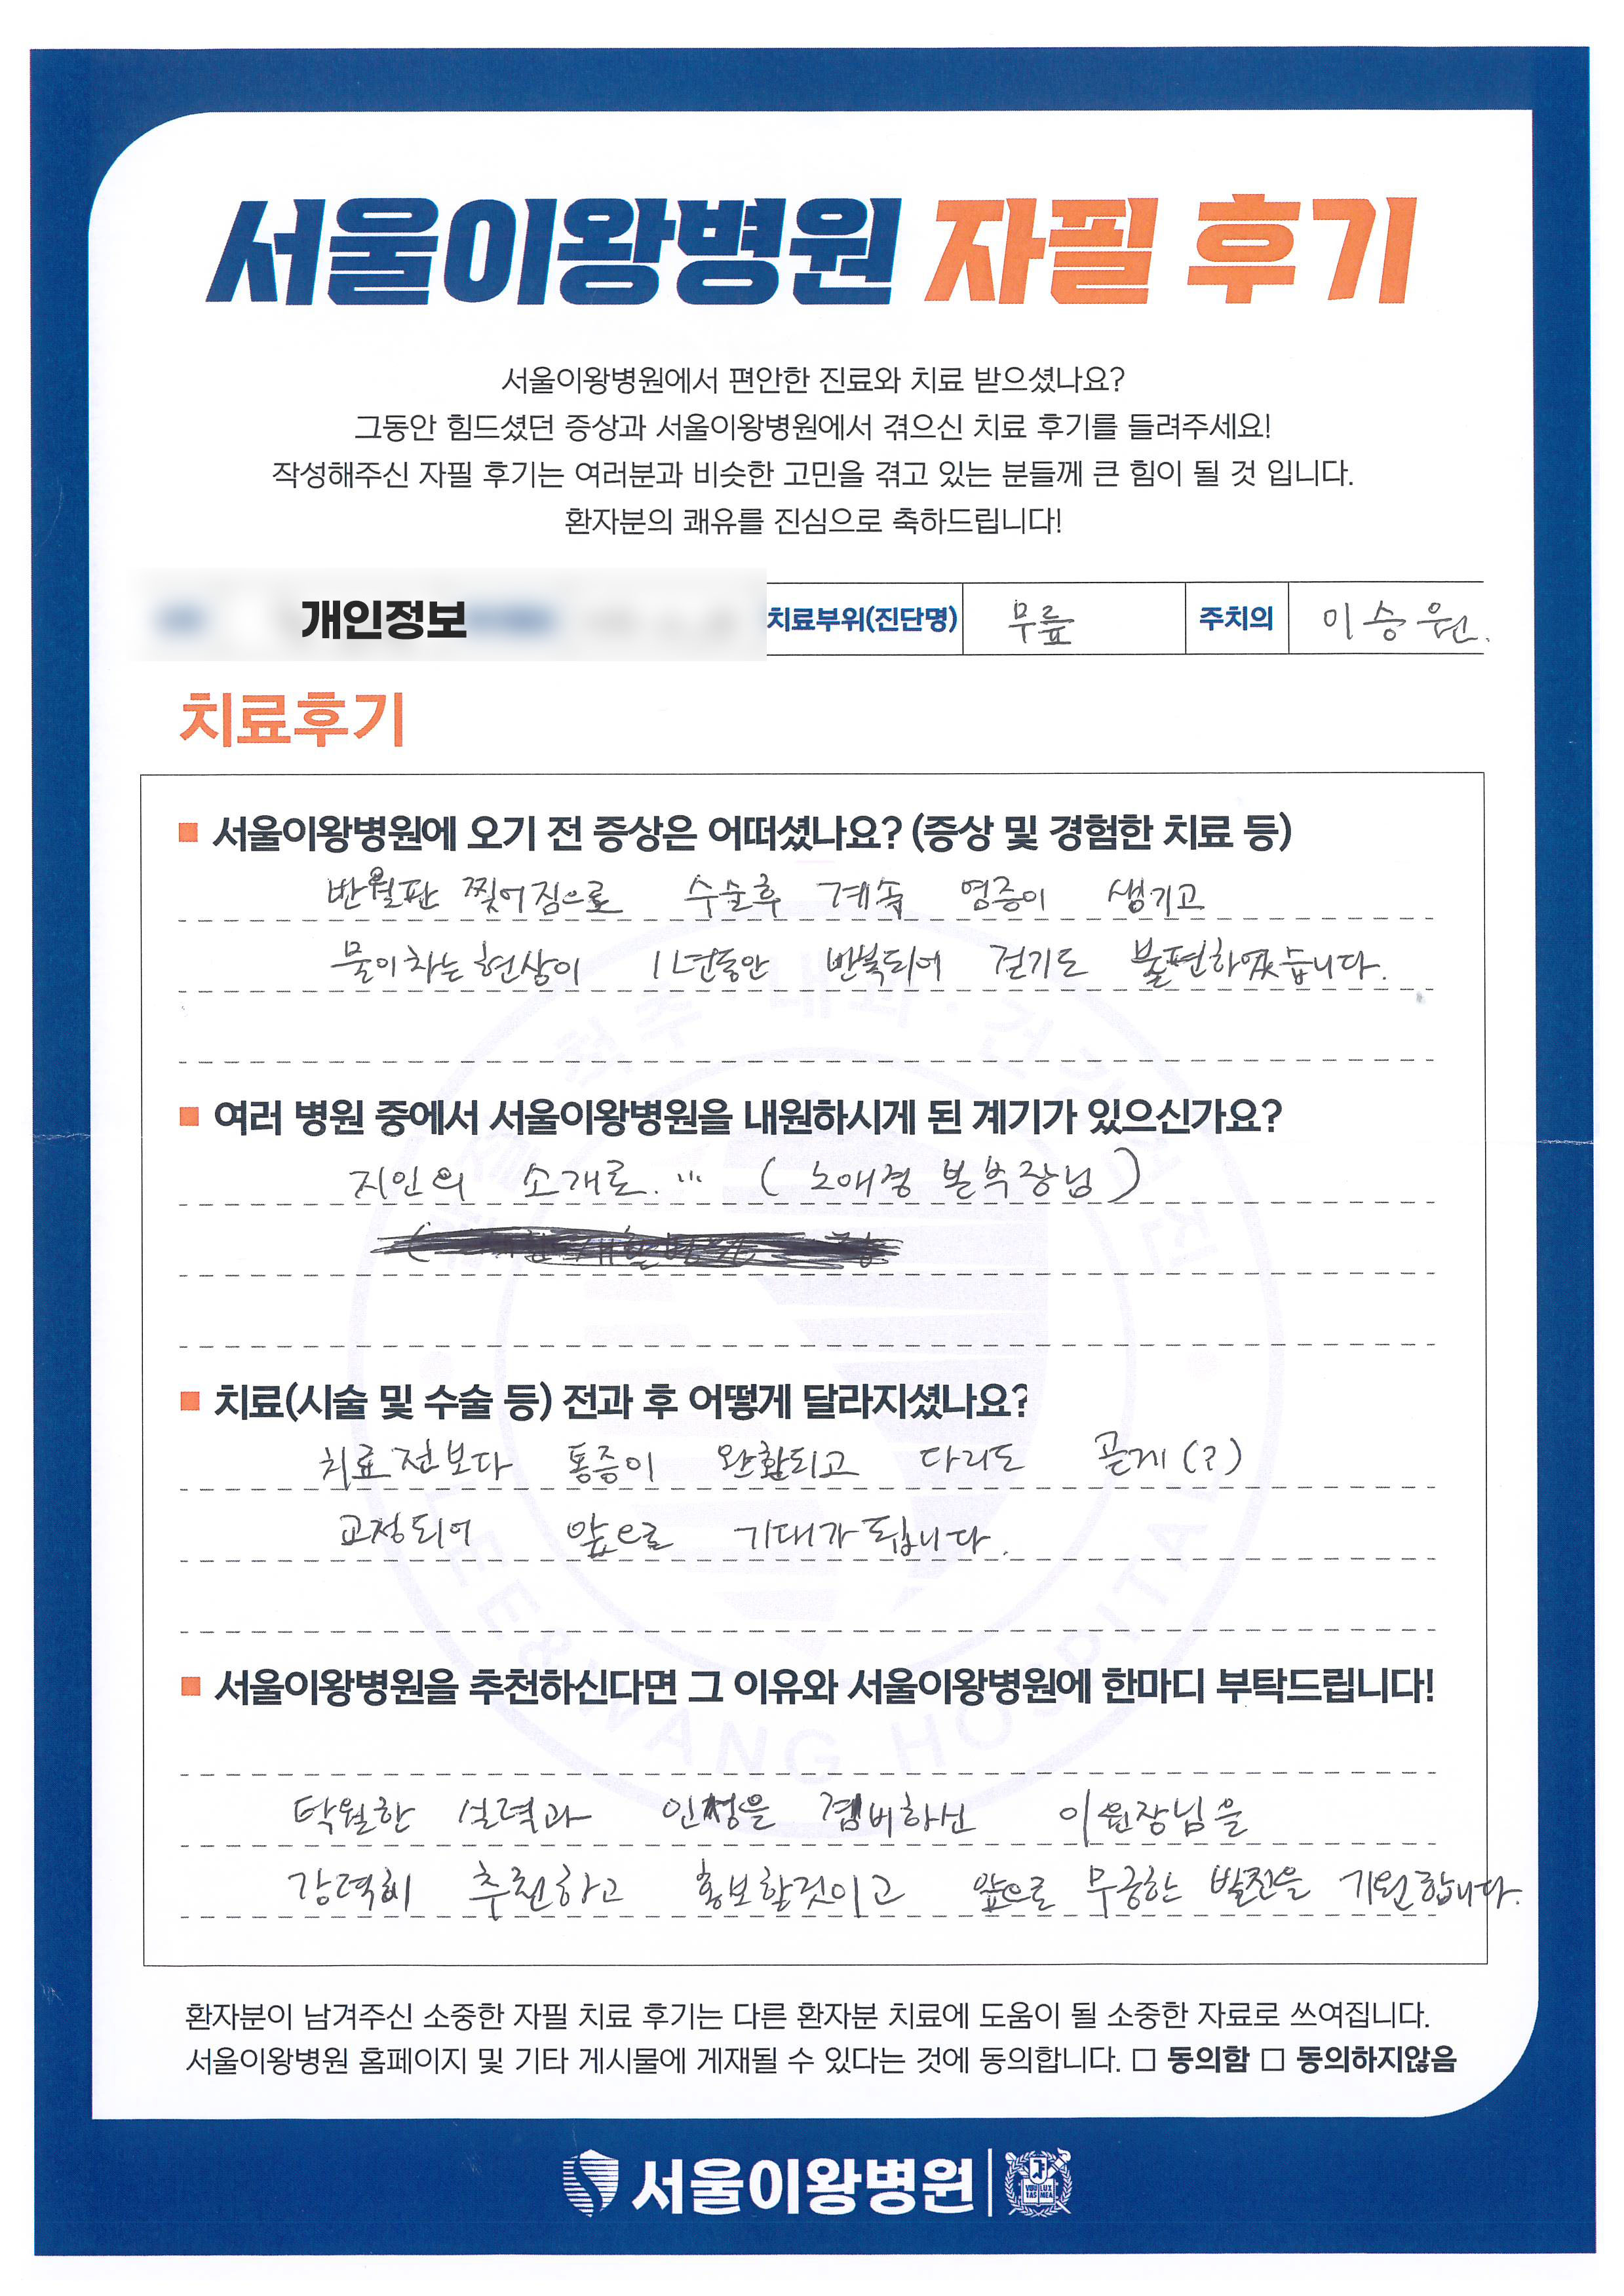 서울이왕병원 자필 후기
서울이왕병원에서 편안한 진료와 치료 받으셨나요?
그동안 힘드셨던 증상과 서울이왕병원에서 겪으신 치료 후기를 들려주세요!
작성해주신 자필 후기는 여러분과 비슷한 고민을 겪고 있는 분들께 큰 힘이 될 것 입니다.
환자분의 쾌유를 진심으로 축하드립니다!
개인정보 치료부위(진단명) 무릎 주치의 이승원.
치료후기
서울이왕병원에 오기 전 증상은 어떠셨나요? (증상 및 경험한 치료 등)
반월판 찢어짐으로 수술후 계속 염증이 생기고
물이차는현상이 1년동안 반복되어 걷기도 불편하였습니다.
여러 병원 중에서 서울이왕병원을 내원하시게 된 계기가 있으신가요?
지인의 소개로... (노애경 본부장님)
치료(시술 및 수술 등) 전과 후 어떻게 달라지셨나요?
치료전보다 통증이 완화되고 다리도 곧게(?)
교정되어 앞으로 기대가 됩니다.
서울이왕병원을 추천하신다면 그 이유와 서울이왕병원에 한마디 부탁드립니다!
탁월한 실력과 인성을 겸비하신 이원장님을
강력히 추천하고 홍보할것이고 앞으로 무궁한 발전을 기원합니다.
환자분이 남겨주신 소중한 자필 치료 후기는 다른 환자분 치료에 도움이 될 소중한 자료로 쓰여집니다.
서울이왕병원 홈페이지 및 기타 게시물에 게재될 수 있다는 것에 동의합니다. □ 동의함 □ 동의하지않음
LEE&WANG HOSPITAL
서울이왕병원